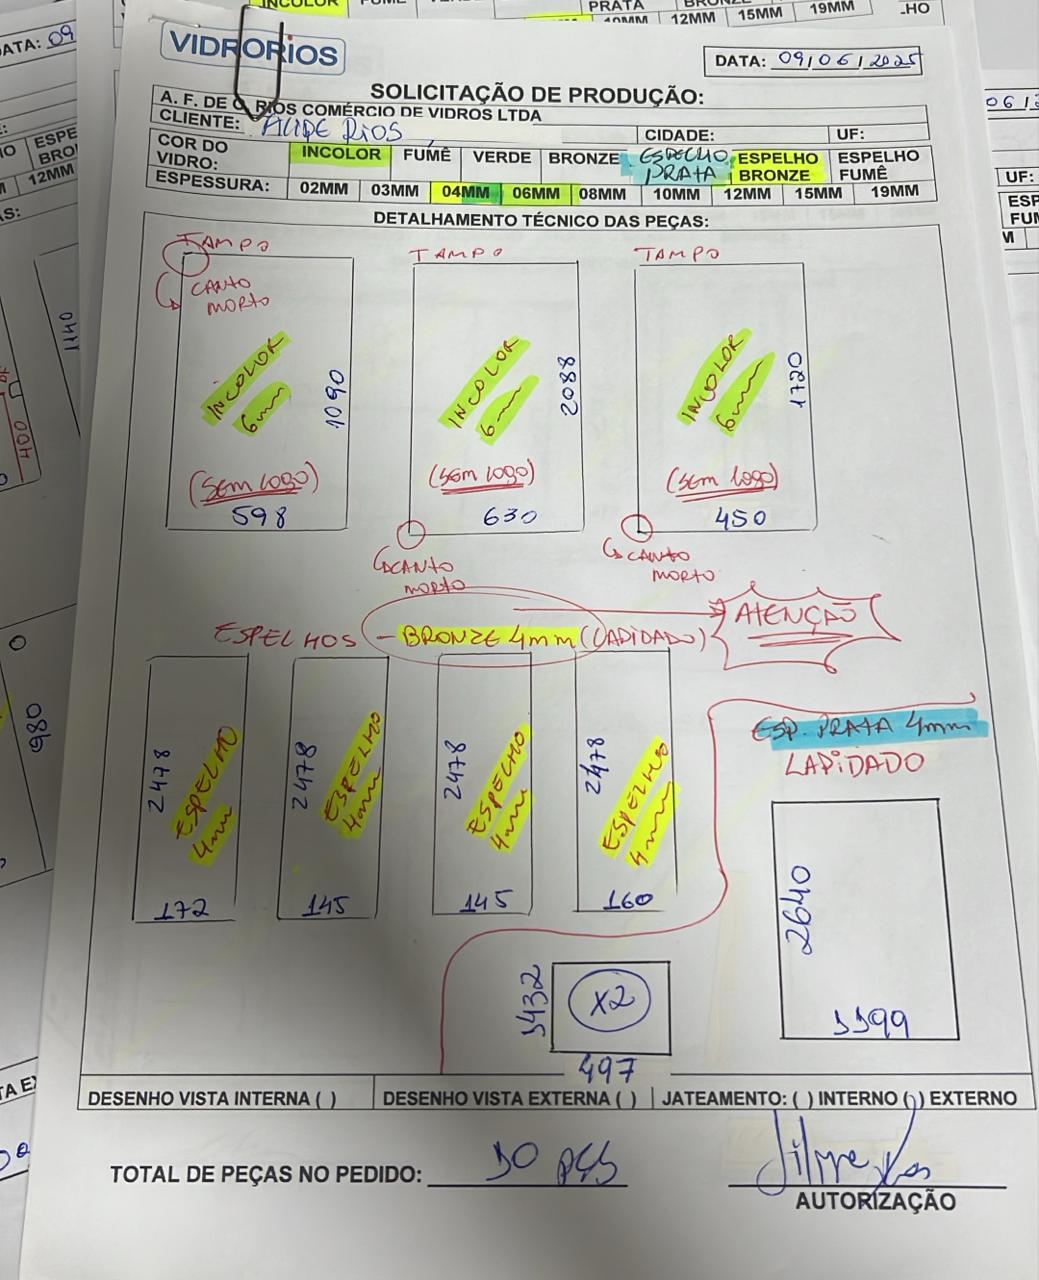 VIDRORIOS
DATA: 09/06/2025
SOLICITAÇÃO DE PRODUÇÃO:
A. F. DE O. RIOS COMÉRCIO DE VIDROS LTDA
CLIENTE: RIOS CIDADE: UF:
COR DO VIDRO: INCOLOR FUMÊ VERDE BRONZE ESPELHO PRATA ESPELHO BRONZE ESPELHO FUMÊ
ESPESSURA: 02MM 03MM 04MM 06MM 08MM 10MM 12MM 15MM 19MM
DETALHAMENTO TÉCNICO DAS PEÇAS:
TAMPO TAMPO TAMPO
CANTO MORTO
INCOLOR 6mm 1090
INCOLOR 6mm 2088
INCOLOR 6mm 1720
(SEM LOGO) (SEM LOGO) (SEM LOGO)
598 630 450
CANTO MORTO CANTO MORTO
ATENÇÃO
ESPELHOS - BRONZE 4mm (LAPIDADO)
2478 ESPELHO 4mm
2478 ESPELHO 4mm
2478 ESPELHO 4mm
2478 ESPELHO 4mm
172 145 145 160
ESP. PRATA 4mm
LAPIDADO
2640
1199
1432 X2
497
DESENHO VISTA INTERNA ( ) DESENHO VISTA EXTERNA ( ) JATEAMENTO: ( ) INTERNO ( ) EXTERNO
TOTAL DE PEÇAS NO PEDIDO: 10 PÇS
AUTORIZAÇÃO
INCOLOR
PRATA
10MM 12MM 15MM 19MM
DATA: 09
12MM
1440
400
980
UF: